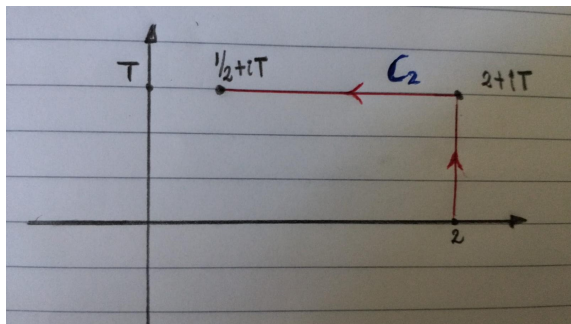 T
1/2+iT
C₂
2+iT
2